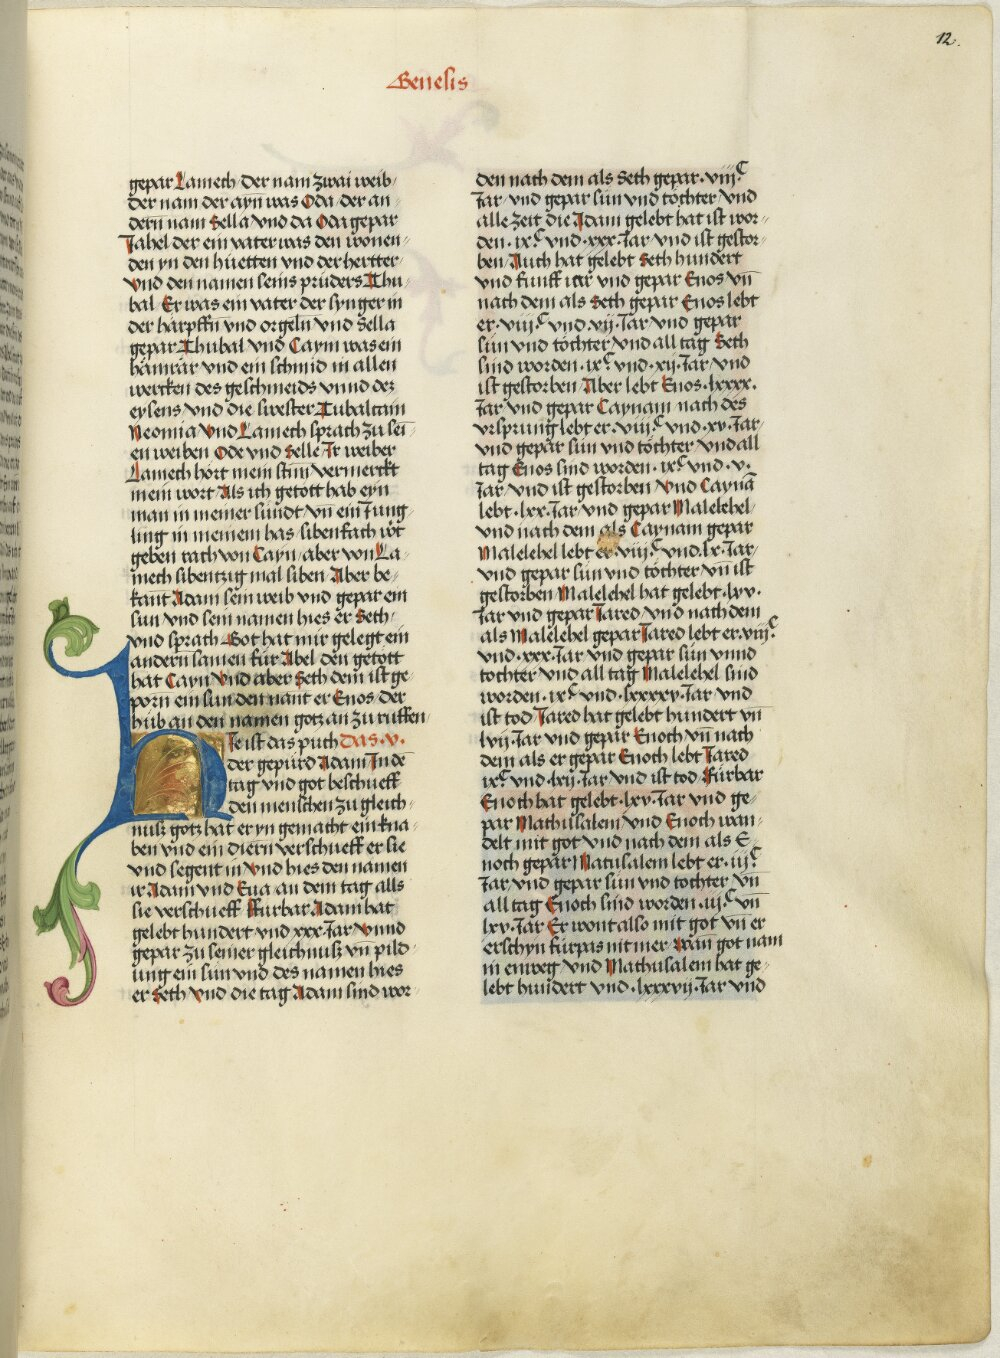 12.
Genesis
gepar Lamech / der nam zwai weib /
der nam der ayn was Oda / der an⸗
dern nam Sella vnd da Oda gepar
Jahel der ein vater was den wonen⸗
den yn den huetten vnd der hertter⸗
vnd den namen seins pruders Thu⸗
bal Er was ein vater der synger in
der härpffn̄ vnd orgeln vnd Sella
gepar Thubal vnd Caym was ein
hämrär vnd ein schmid in allen
wercken des geschmeids vnnd dez
eysens / vnd die swester Tubalcain
Neomia vnd Lamech sprach zu sei⸗
en weiben Ode vnd Selle Jr weiber
Lamech hört mein stim vermerckt
mein wort Als ich getött hab eyn
man in meiner sundt vn̄ ein Jung⸗
ling in meinem has / sibenfach wirt
geben rach von Cayn / aber von La⸗
mech sibentzig mal siben Aber be⸗
kant Adam sein weib vnd gepar ein
sun vnd sein namen hies er Seth /
vnd sprach Got hat mir gelegt ein
andern samen für Abel den getött
hat Cayn Vnd aber Seth dem ist ge⸗
porn ein sun den nant er Enos / der
hub an den namen gotz an zu ruffen /
HJe ist das puch das .v.
der gepurd Adam Jn de
tag vnd got beschueff
den menschen zu gleich⸗
nusz gotz hat er yn gemacht ein kna⸗
ben vnd ein diern verschueff er sie
vnd segent in vnd hies den namen
ir Adam vnd Eua an dem tag alls
sie verschueff Fürbar Adam hat
gelebt hundert vnd xxx Jar vnnd
gepar zu seiner gleichnusz vn̄ pild⸗
ung ein sun vnd des namen hies
er Seth vnd die tag Adam sind wor⸗
den nach dem als Seth gepar .viijC
Jar / vnd gepar sün vnd töchter vnd
alle zeit die Adam gelebt hat ist wor⸗
den .ixC vnd .xxx. Jar / vnd ist gestor⸗
ben / Auch hat gelebt Seth hundert
vnd funff iar vnd gepar Enos vn̄
nach dem als Seth gepar Enos lebt
er .viijC vnd .vij. Jar vnd gepar
sün vnd töchter vnd all tag Seth
sind worden .ixC vnd .xij. Jar / vnd
ist gestorben / Aber lebt Enos .lxxxx.
Jar vnd gepar Caynam / nach des
vrsprung lebt er .viijC vnd .xv. Jar /
vnd gepar sün vnd töchter / vnd all
tag Enos sind worden .ixC vnd .v.
Jar / vnd ist gestorben Vnd Caynā
lebt .lxx. Jar / vnd gepar Malelehel /
vnd nach dem als Caynam gepar
Malelehel lebt er .viijC vnd .lx. Jar /
vnd gepar sün vnd töchter vn̄ ist
gestorben Malelehel hat gelebt .lxv.
Jar vnd gepar Jared / vnd nach dem
als Malelehel gepar Jared lebt er .viijC
vnd .xxx. Jar vnd gepar sün vnnd
tochter vnd all tag Malelehel sind
worden .ixC vnd .lxxxxv. Jar vnd
ist tod / Jared hat gelebt hundert vn̄
lvij. Jar vnd gepar Enoch vn̄ nach
dem als er gepar Enoch lebt Jared
ixC vnd .lxij. Jar vnd ist tod Fürbar
Enoch hat gelebt .lxv. Jar vnd ge⸗
par Mathusalem vnd Enoch wan⸗
delt mit got vnd nach dem als E⸗
noch gepar Matusalem lebt er .iijC
Jar vnd gepar sün vnd tochter vn̄
all tag Enoch sind worden .iijC vn̄
lxv. Jar Er wont also mit got vn̄ er
erschyn fürpas nit mer / wan̄ got nam
in enweg vnd Mathusalem hat ge⸗
lebt hundert vnd .lxxxvij. Jar vnd